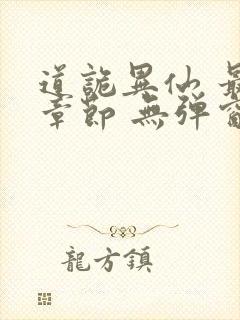 道詭異仙 最
章節 無彈窗
龍方鎮